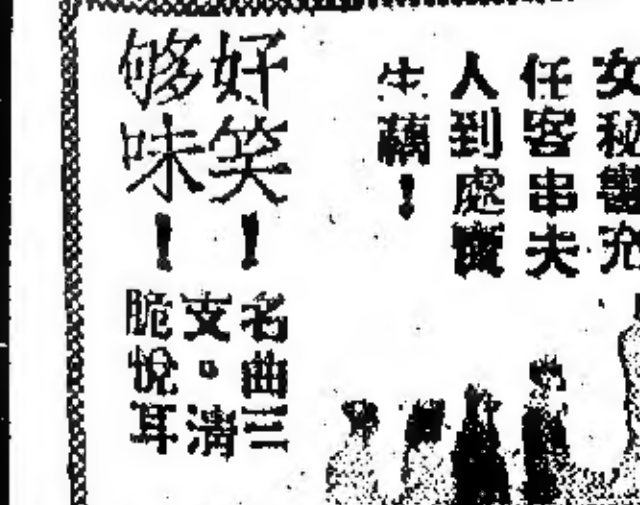 女秘書充
任客串夫
人到處賣
生藕！
好笑！
够味！
名曲三
支。清
脆悅耳